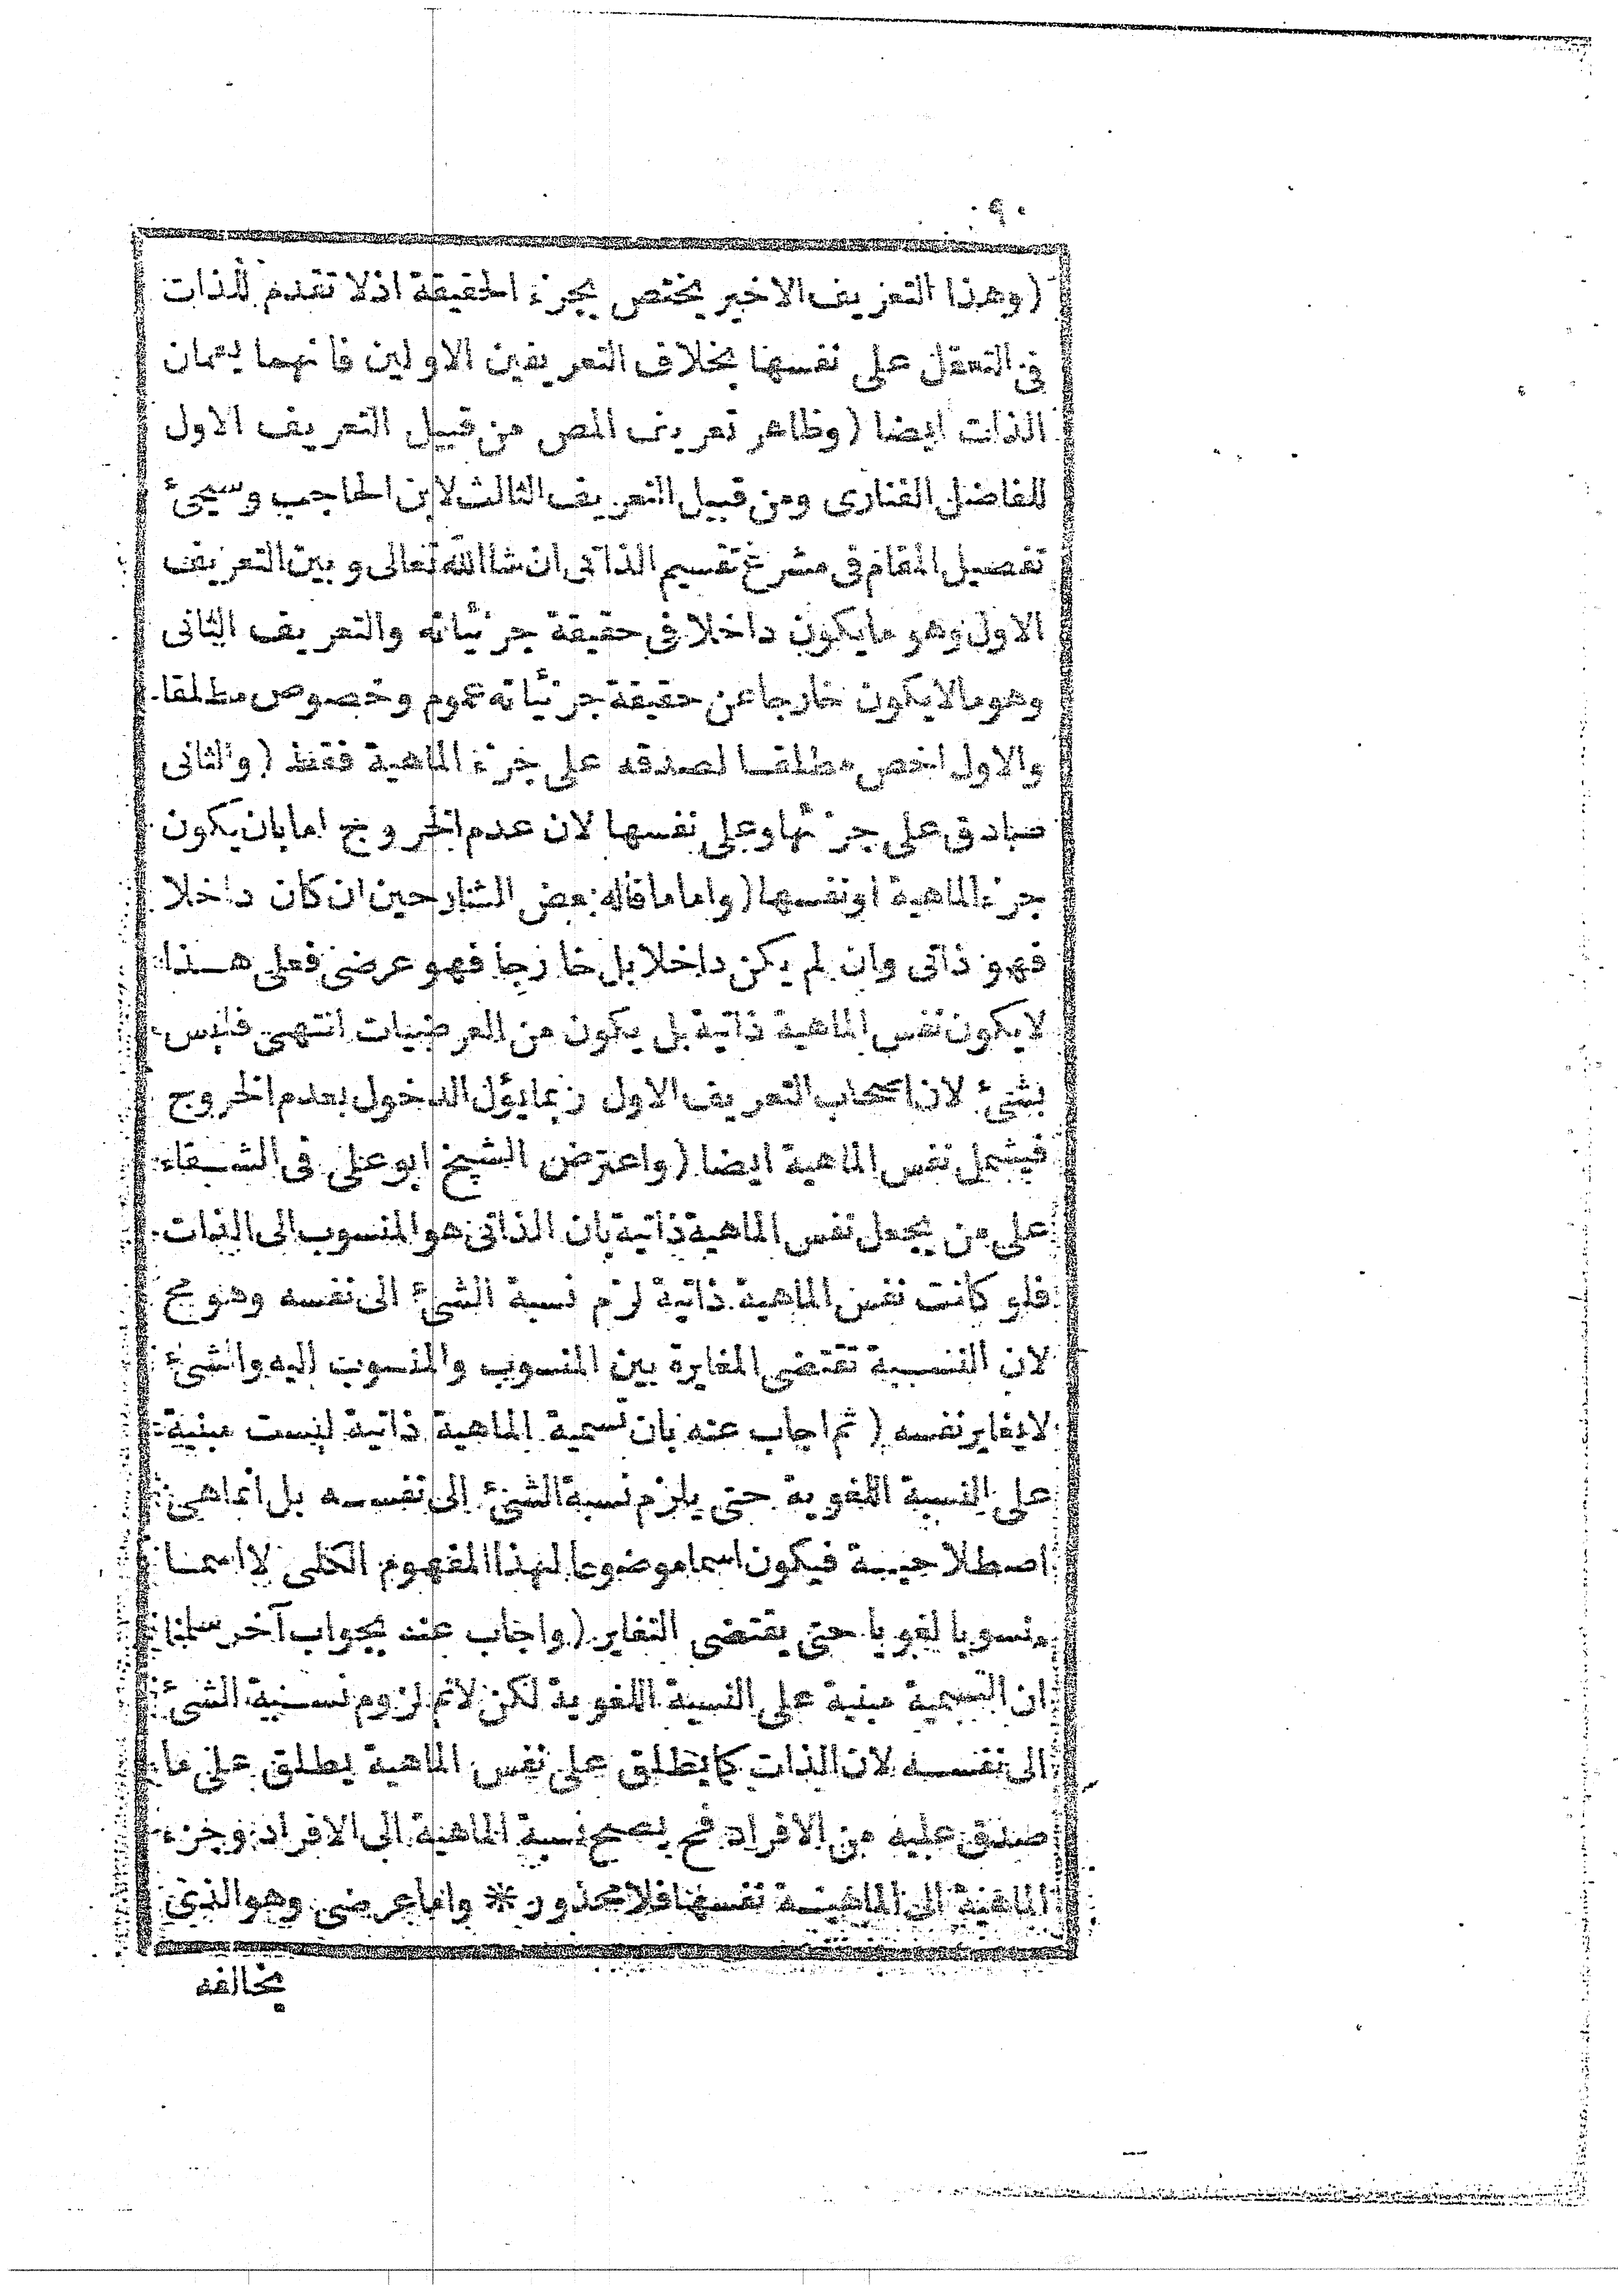 ٩٠
(وهذا التعريف الاخير يختص بجزء الحقيقة اذلا تقدم للذات
فى التعقل على نفسها بخلاف التعريفين الاولين فانهما يعمان
الذات ايضا (وظاهر تعريف المص من قبيل التعريف الاول
للفاضل الفنارى ومن قبيل التعريف الثالث لابن الحاجب وسيجئ
تفصيل المقام فى مشرع تقسيم الذاتى ان شاالله تعالى وبين التعريف
الاول وهو مايكون داخلا فى حقيقة جزئياته والتعريف الثانى
وهو مالايكون خارجا عن حقيقة جزئياته عموم وخصوص مطلقا
والاول اخص مطلقا لصدقه على جزء الماهية فقط (والثانى
صادق على جزئها وعلى نفسها لان عدم الخروج اما بان يكون
جزء الماهية او نفسها (واما ما قاله بعض الشارحين ان كان داخلا
فهو ذاتى وان لم يكن داخلا بل خارجا فهو عرضى فعلى هذا
لايكون نفس الماهية ذاتية بل يكون من العرضيات انتهى فليس
بشئ لان اصحاب التعريف الاول ربما يؤل الدخول بعدم الخروج
فيشمل نفس الماهية ايضا (واعترض الشيخ ابو على فى الشفاء
على من يجعل نفس الماهية ذاتية بان الذاتى هو المنسوب الى الذات
فلو كانت نفس الماهية ذاتية لزم نسبة الشئ الى نفسه وهو مح
لان النسبة تقتضى المغايرة بين المنسوب والمنسوب اليه والشئ
لايغاير نفسه (ثم اجاب عنه بان تسمية الماهية ذاتية ليست مبنية
على النسبة اللغوية حتى يلزم نسبة الشئ الى نفسه بل انما هى
اصطلاحية فيكون اسما موضوعا لهذا المفهوم الكلى لا اسما
منسوبا لغويا حتى يقتضى التغاير (واجاب عنه بجواب آخر سلمنا
ان التسمية مبنية على النسبة اللغوية لكن لانم لزوم نسبة الشئ
الى نفسه لان الذات كما يطلق على نفس الماهية يطلق على ما
صدق عليه من الافراد فح يصح نسبة الماهية الى الافراد وجزء
الماهية الى الماهية نفسها فلا محذور * واما عرضى وهو الذى
يخالفه